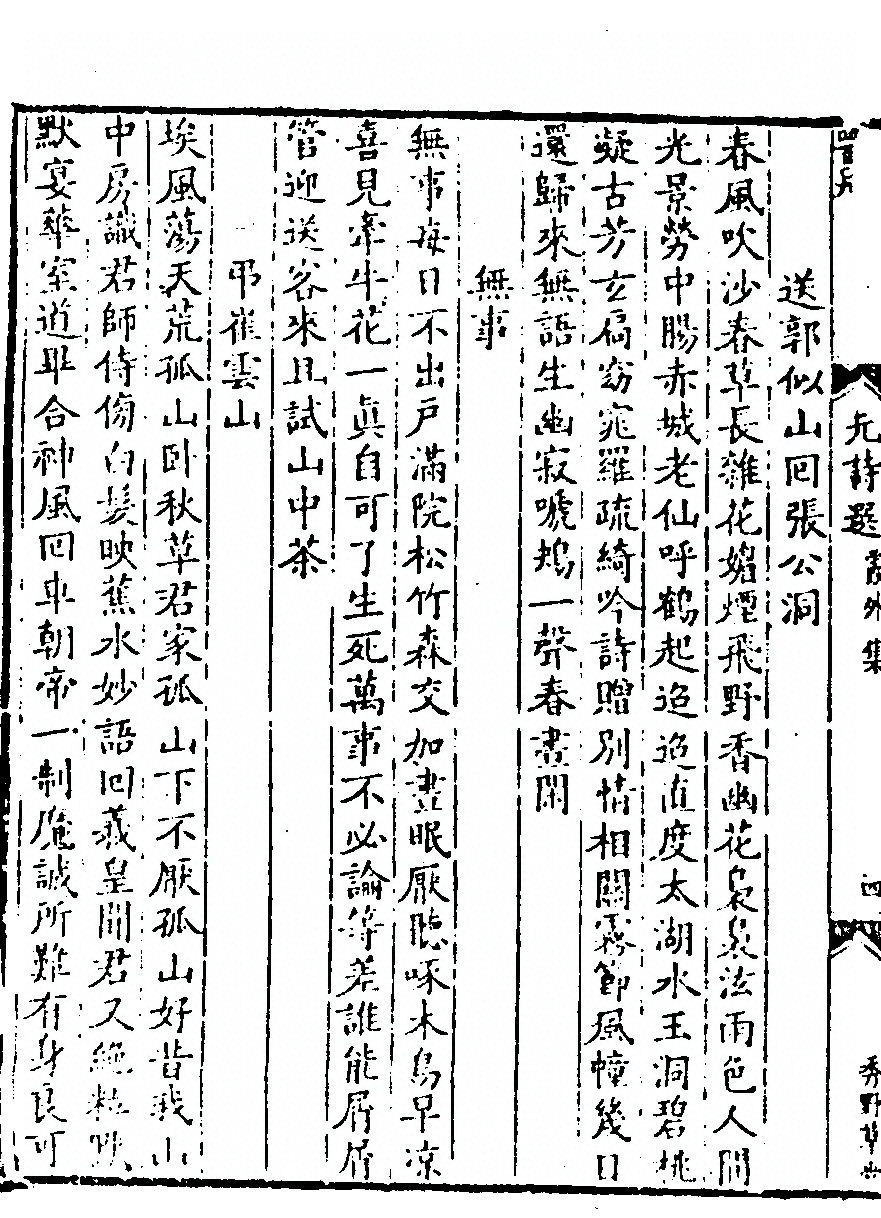 元詩選 霞外集 四 秀野草堂
送郭似山回張公洞
春風吹沙春草長雜花媚煙飛野香幽花裊裊泫雨色人間
光景勞中腸赤城老仙呼鶴起迢迢直度太湖水王洞碧桃
凝古芳玄扃窈窕羅疏綺吟詩贈別情相關霧節風幢幾日
還歸來無語生幽寂啼鴂一聲春晝閑
無事
無事每日不出戶滿院松竹森交加晝眠厭聽啄木鳥早凉
喜見牽牛花一眞自可了生死萬事不必論等差誰能屑屑
管迎送客來且試山中茶
弔崔雲山
埃風蕩天荒孤山卧秋草君家孤山下不厭孤山好昔我山
中房識君師侍傍白髮映蕉水妙語回羲皇聞君又絶粒
默宴華室道畢合神風回車朝帝一制魔誠所難有身良可